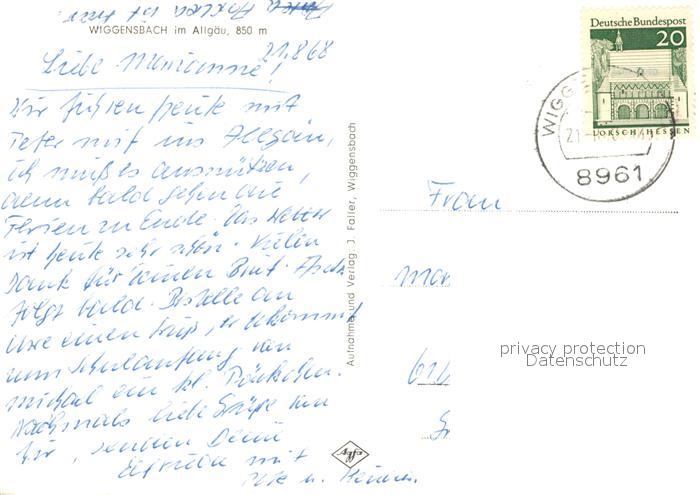 WIGGENSBACH im Allgäu, 850 m
21.8.68
Liebe Marianne!
Wir fuhren heute mit
Peter mit ins Allgäu,
ich muß es ausnützen,
denn bald gehen die
Ferien zu Ende. Das Wetter
ist heute sehr schön. Vielen
Dank für Deinen Brief.
folgt bald. Bestelle an
Uwe einen Gruß, er bekommt
zum Schulanfang von
ein kl. Päckchen.
Nochmals liebe Grüße von
hier, senden Deine
mit
u.
Aufnahme und Verlag: J. Faller, Wiggensbach
Agfa
Deutsche Bundespost
20
LORSCH/HESSEN
WIGG
21
8961
Frau
privacy protection
Datenschutz